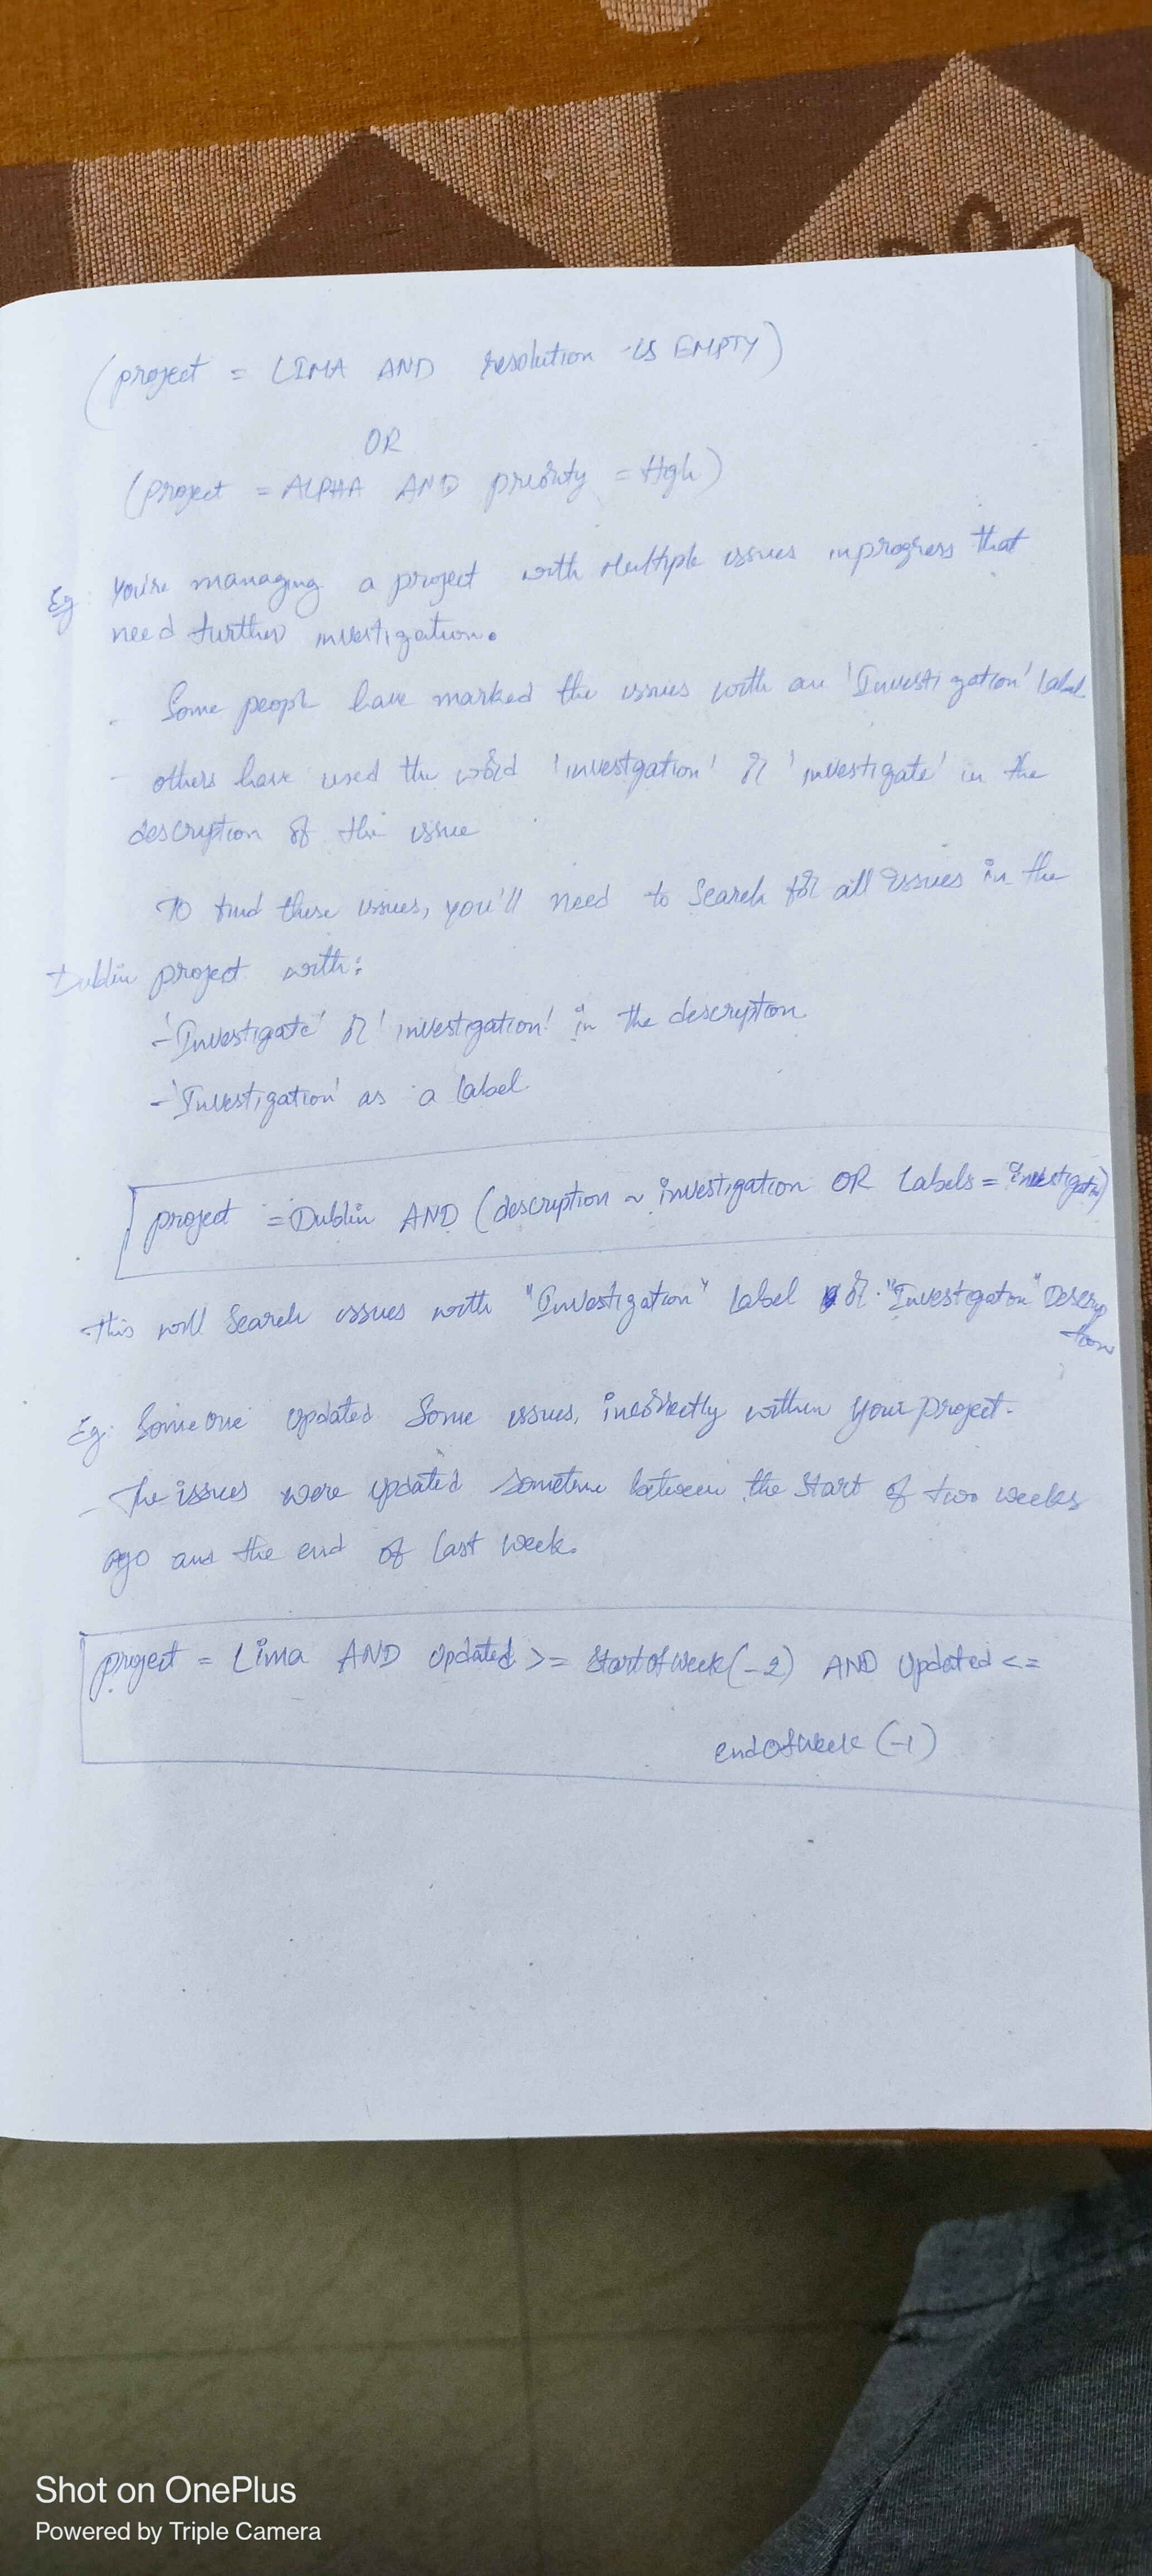 (project = LIMA AND resolution is EMPTY)
OR
(project = ALPHA AND priority = High)
Eg: You're managing a project with Multiple issues inprogress that
need further investigation.
- Some people have marked the issues with an 'Investigation' label
- others have used the word 'investgation' or 'investigate' in the
description of the issue
TO find these issues, you'll need to Search for all issues in the
Dublin project with:
-'Investigate' or 'investigation' in the description
-'Investigation' as a label
project = Dublin AND (description ~ investigation OR Labels = investigation)
this will Search issues with "Investigation" Label or "Investigaton" Descrip
tion
Eg: Someone updated Some issues, incorrectly within your project.
- The issues were updated sometime between the Start of two weeks
ago and the end of last week.
project = Lima AND Updated >= StartofWeek(-2) AND Updated <=
endOfWeek (-1)
Shot on OnePlus
Powered by Triple Camera